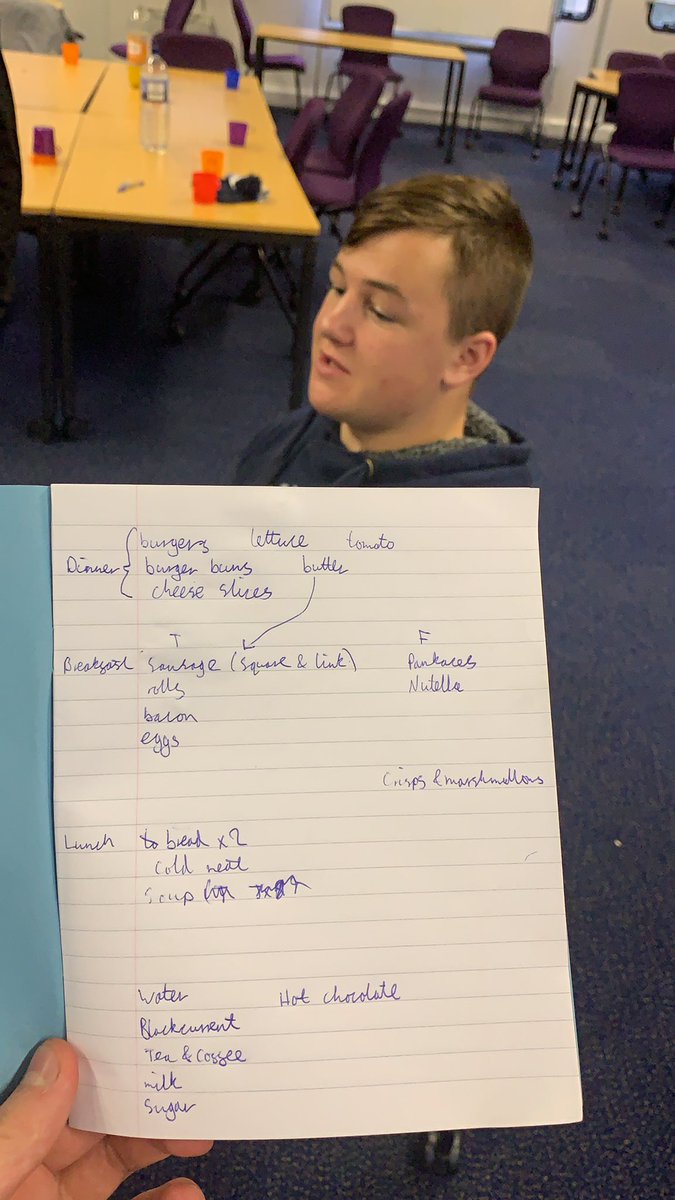 burgers lettuce tomato
Dinner burger buns butter
cheese slices
T F
Breakfast Sausage (Square & link) Pankaces
rolls Nutella
bacon
eggs
Crisps & marshmallows
Lunch to bread x2
cold meat
Soup
Water Hot chocolate
Blackcurrent
Tea & Coffee
milk
Sugar